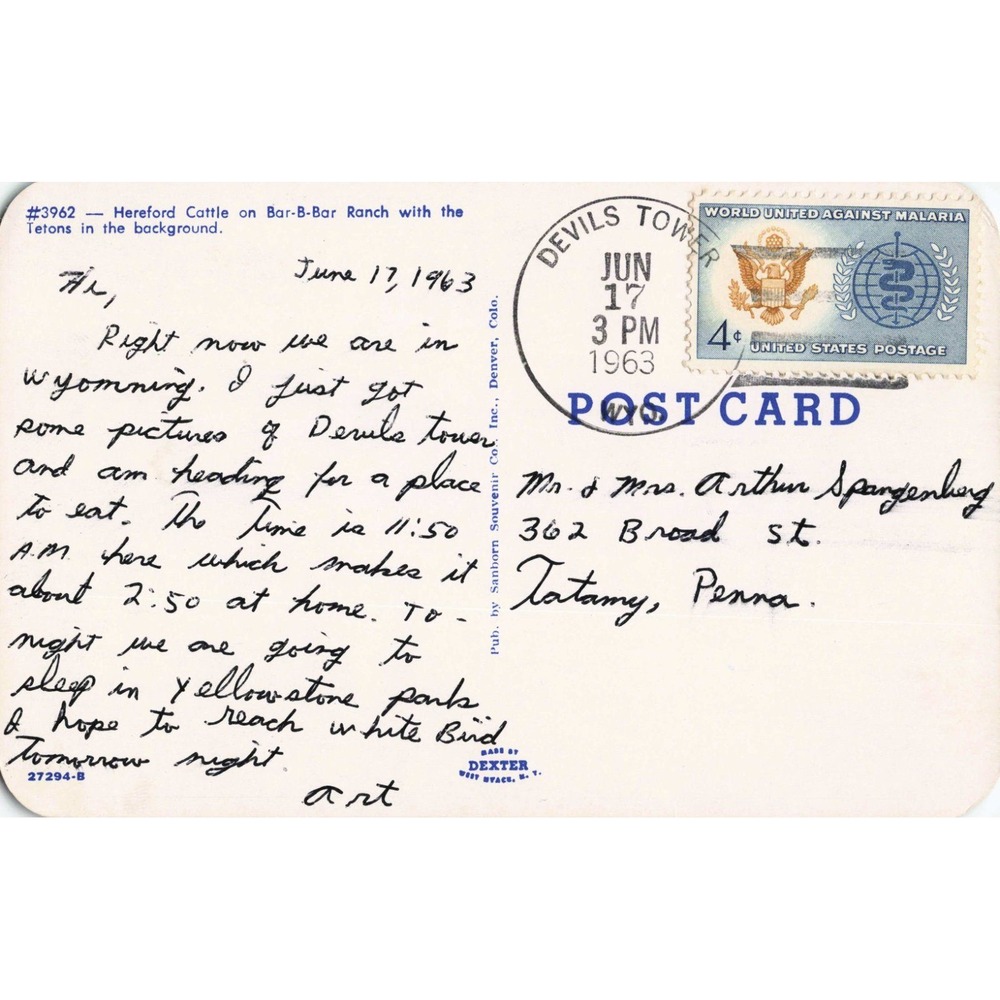 #3962 — Hereford Cattle on Bar-B-Bar Ranch with the
Tetons in the background.
June 17, 1963
Hi,
Right now we are in
Wyomning. I just got
some pictures of Devils tower
and am heading for a place
to eat. The time is 11:50
A.M. here which makes it
about 2:50 at home. To-
night we are going to
sleep in Yellowstone park
I hope to reach white Bird
Tomorrow night
Art
27294-B
Pub. by Sanborn Souvenir Co., Inc., Denver, Colo.
MADE BY
DEXTER
WEST NYACK, N. Y.
DEVILS TOWER
JUN
17
3 PM
1963
WYO.
WORLD UNITED AGAINST MALARIA
4¢
UNITED STATES POSTAGE
POST CARD
Mr. & Mrs. Arthur Spangenberg
362 Broad St.
Tatamy, Penna.